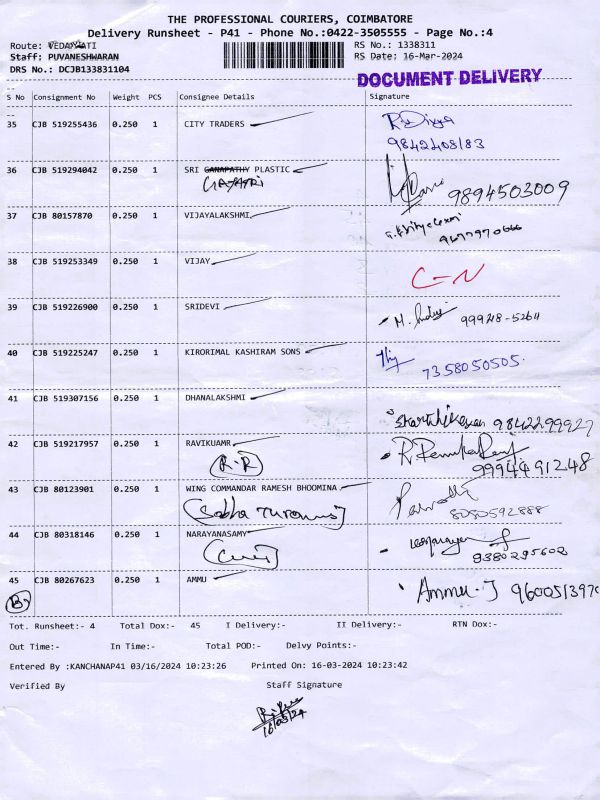 THE PROFESSIONAL COURIERS, COIMBATORE
Delivery Runsheet - P41 - Phone No.:0422-3505555 - Page No.:4
Route: VEDAPATI RS No.: 1338311
Staff: PUVANESHWARAN RS Date: 16-Mar-2024
DRS No.: DCJB133831104
DOCUMENT DELIVERY
S No Consignment No Weight PCS Consignee Details Signature
35 CJB 519255436 0.250 1 CITY TRADERS R. Divya
9842408183
36 CJB 519294042 0.250 1 SRI GANAPATHY PLASTIC 9894503009
GAYATRI
37 CJB 80157870 0.250 1 VIJAYALAKSHMI
9677970666
38 CJB 519253349 0.250 1 VIJAY C-N
39 CJB 519226900 0.250 1 SRIDEVI 999418-52611
40 CJB 519225247 0.250 1 KIRORIMAL KASHIRAM SONS
7358050505.
41 CJB 519307156 0.250 1 DHANALAKSHMI
skarthikeyan 9842299927
42 CJB 519217957 0.250 1 RAVIKUAMR
R.R 9994491248
43 CJB 80123901 0.250 1 WING COMMANDAR RAMESH BHOOMINA
Sobha 8050592888
44 CJB 80318146 0.250 1 NARAYANASAMY
9380295602
45 CJB 80267623 0.250 1 AMMU Ammu. J 9600513970
Tot. Runsheet:- 4 Total Dox:- 45 I Delivery:- II Delivery:- RTN Dox:-
Out Time:- In Time:- Total POD:- Delvy Points:-
Entered By :KANCHANAP41 03/16/2024 10:23:26 Printed On: 16-03-2024 10:23:42
Verified By Staff Signature
16/03/24